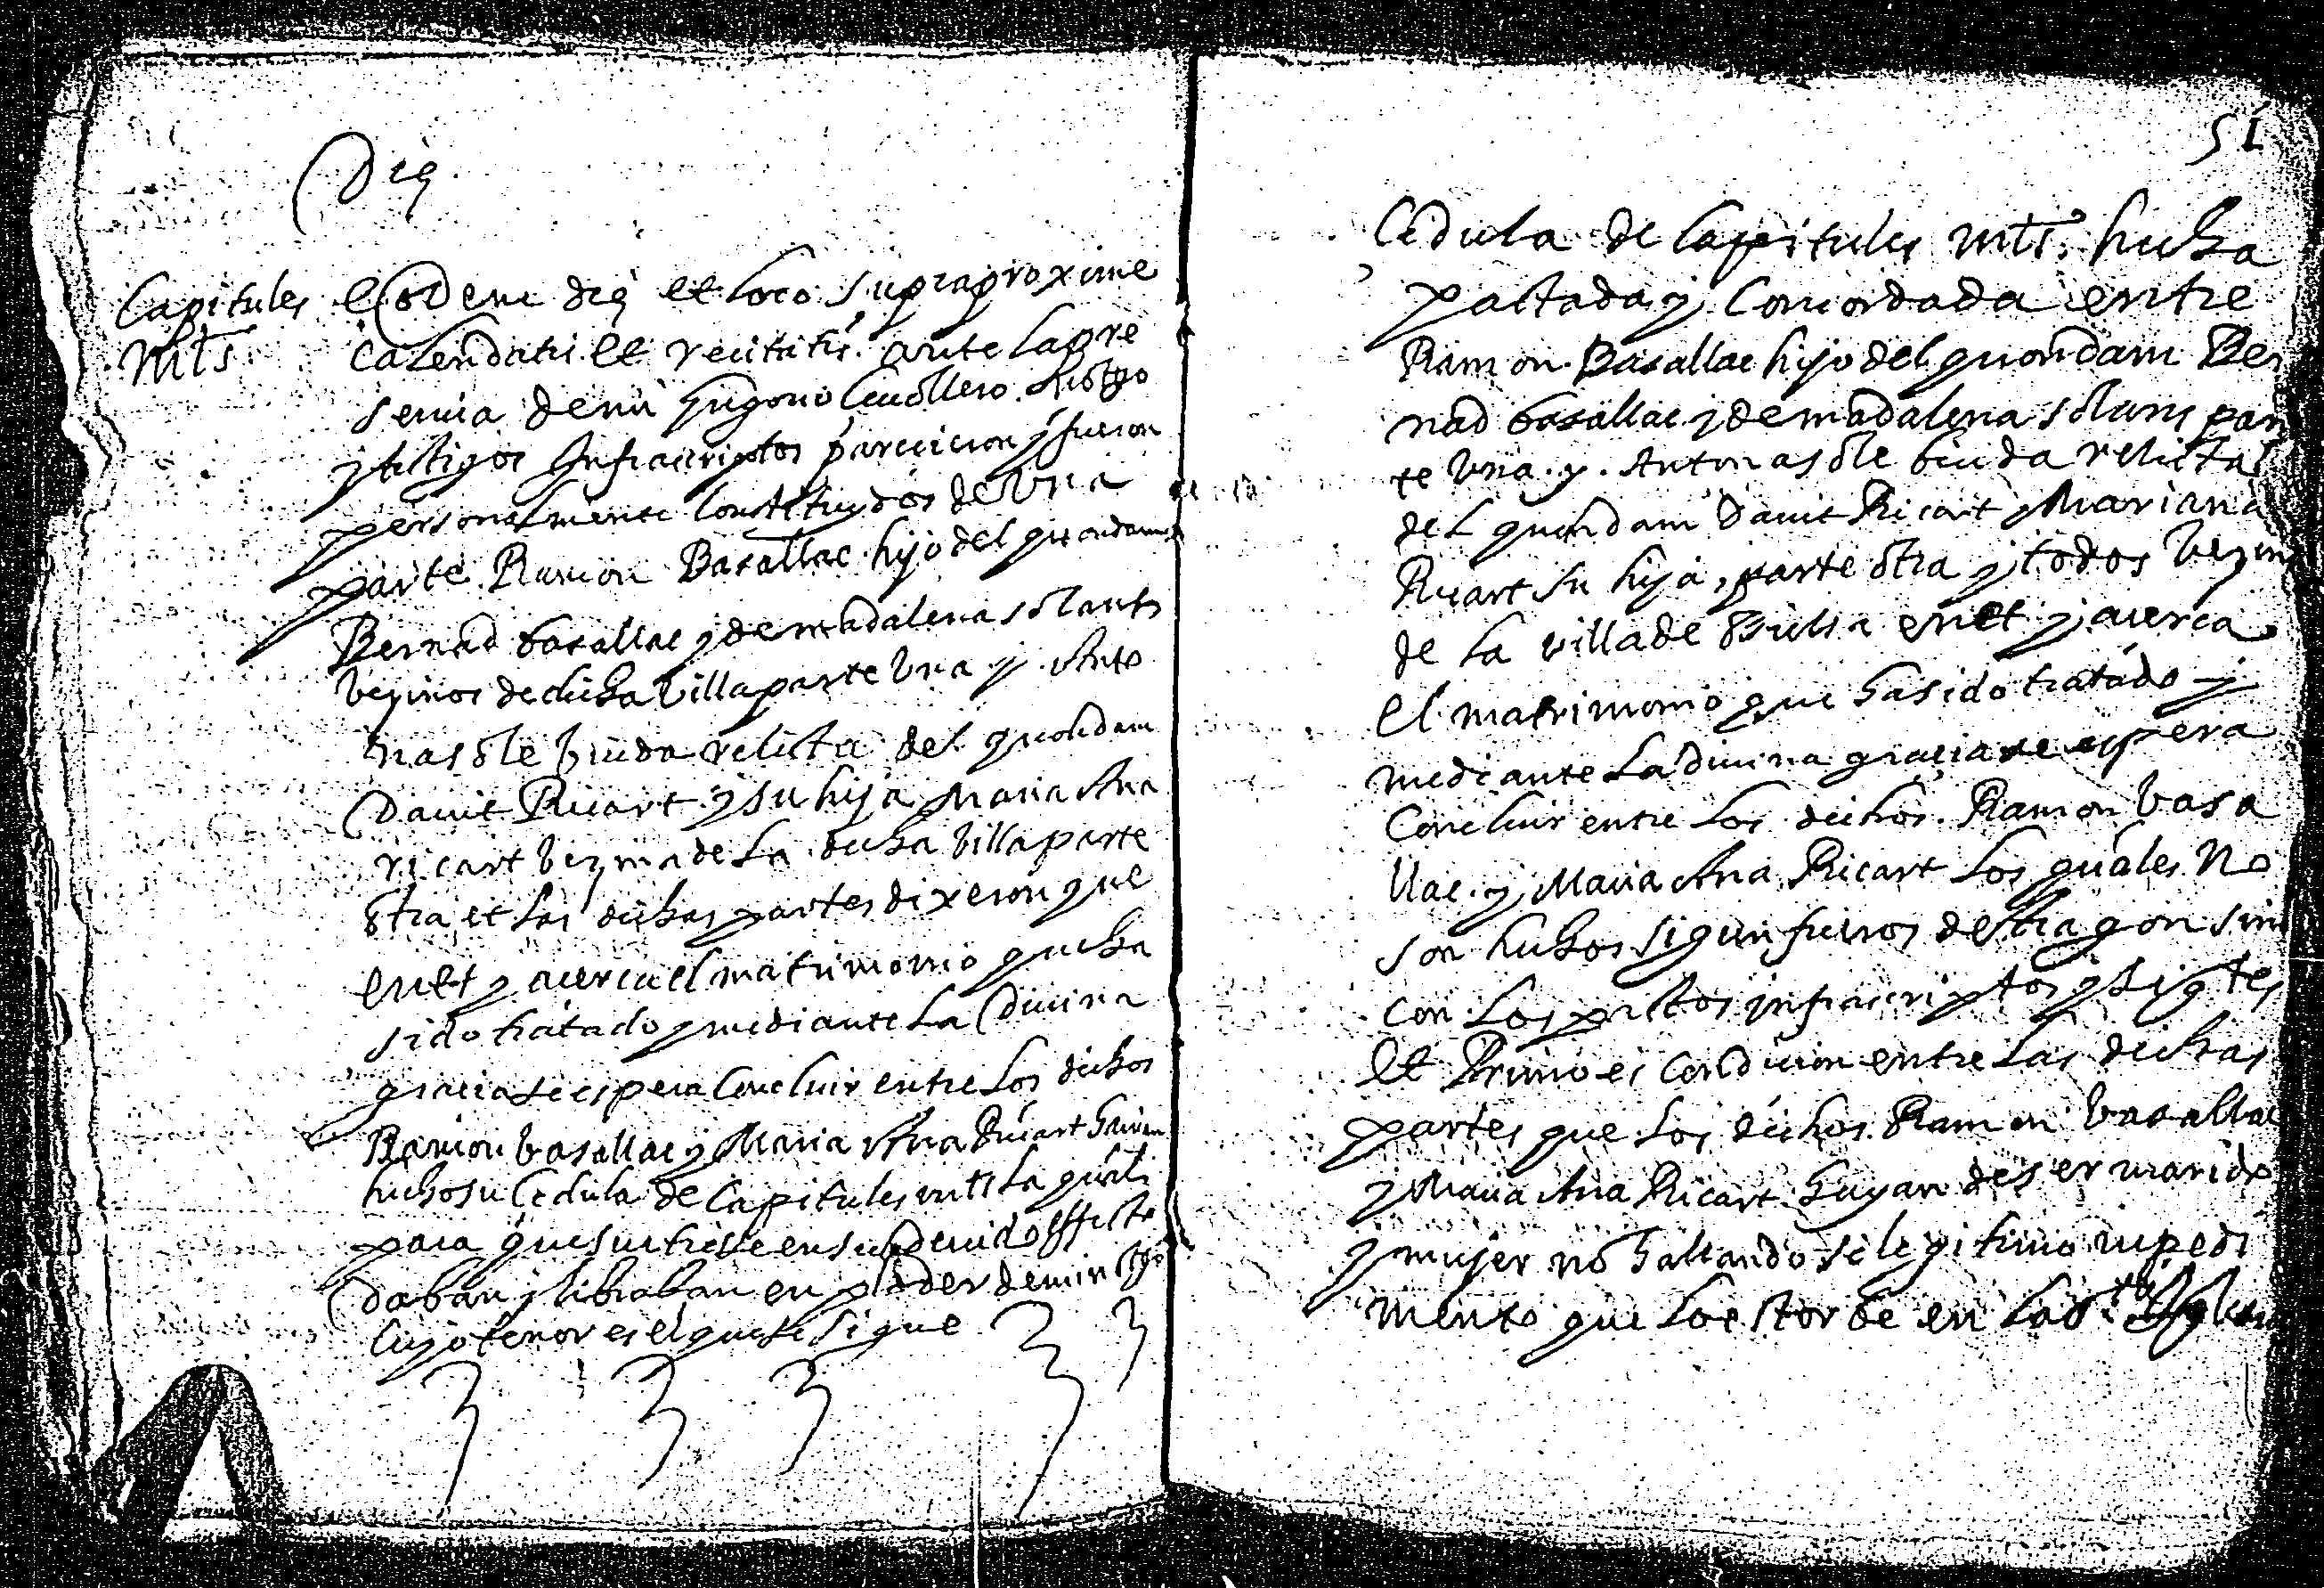 Die
Capitules
mts
Eodem die et loco supraproxime
calendatis et recitatis ante la pre
sencia de mi Not.o
y testigos Infrascriptos parecieron y fueron
personalmente constituydos de Una
parte Ramon Basallac hijo del quondam
Bernad basallac y de madalena solans
bezinos de dicha Villa parte Una y Anto
na sole biuda relicta del quondam
Dauit Ricart y su hija Maria Ana
ricart bezina de La dicha billa parte
otra et las dichas partes dixeron que
en et y acerca el matrimonio que ha
sido tratado y mediante La Diuina
gracia se espera Concluir entre Los dichos
Ramon basallac y Maria Ana Ricart hauian
hecho su Cedula de Capitules mts La qual
para que surtiese en su deuido effecto
daban y libraban en poder de mi
cuyo tenor es el que se sigue
51
Cedula de Capitules mts. hecha
pactada y Concordada entre
Ramon Basallac hijo del quondam Ber
nad basallac y de madalena solans par
te Una y Antona sole biuda relicta
del quondam Dauit Ricart y Mariana
Ricart su hija, parte otra y todos bezinos
de La villa de en et y acerca
el matrimonio que ha sido tratado y
mediante La diuina gracia se espera
Concluir entre Los dichos Ramon basa
llac y Maria Ana Ricart Los quales No
son hechos sigun fueros de Aragon sino
con Los pactos infrascriptos y sigtes
Et Primo es Condicion entre Las dichas
partes que Los dichos Ramon basallac
y Maria Ana Ricart hayan de ser marido
y mujer no hallandose legitimo inpedi
mento que Lo estorbe en La Sta Iglesia